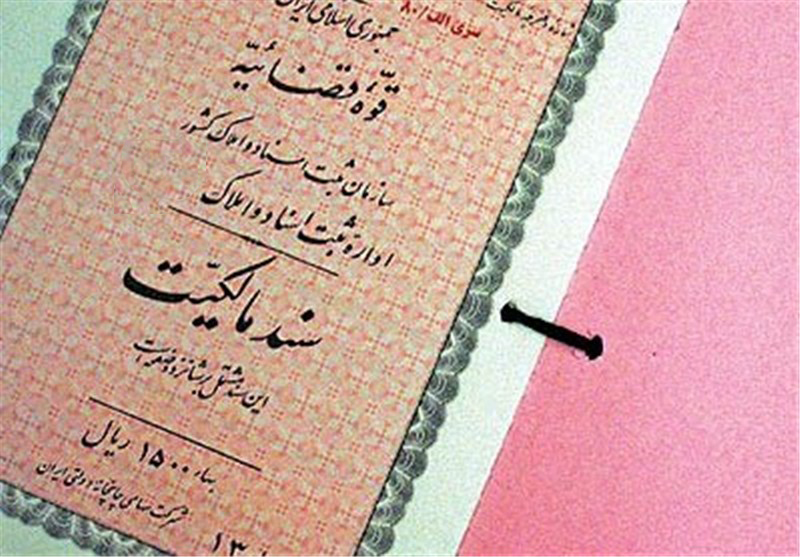 جمهوری اسلامی ایران
سری الف/۸۰
قوّهٔ قضائیّه
سازمان ثبت اسناد و املاک کشور
ادارهٔ ثبت اسناد و املاک
سند مالکیّت
این سند مشتمل بر شانزده صفحه است
بهاء ۱۵۰۰ ریال
شرکت سهامی چاپخانه دولتی ایران